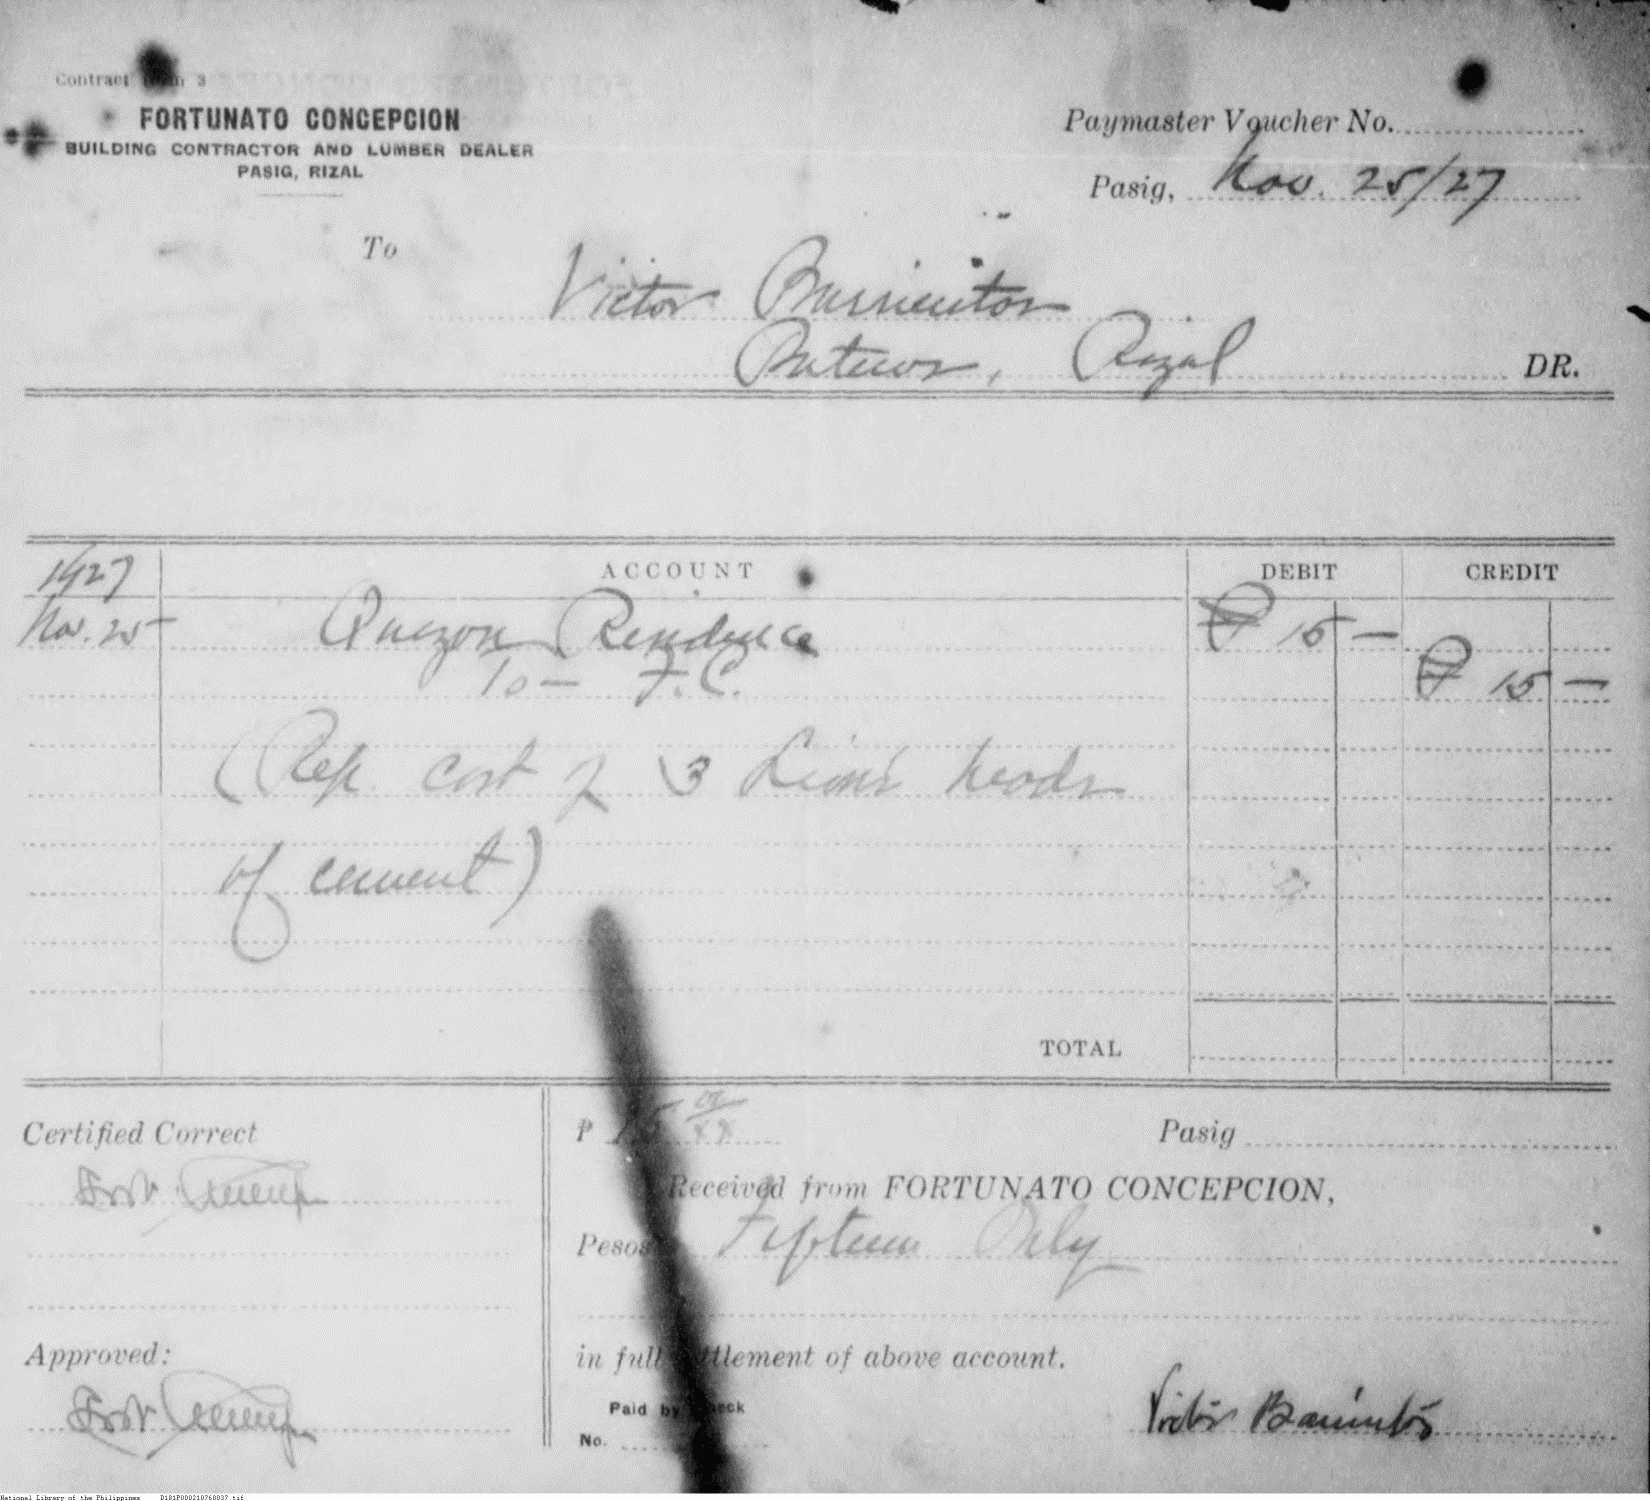 Contract Form 3
FORTUNATO CONCEPCION
BUILDING CONTRACTOR AND LUMBER DEALER
PASIG, RIZAL
Paymaster Voucher No.
Pasig, Nov. 25/27
To
Victor Barrientos
Pateros, Rizal DR.
1927 ACCOUNT DEBIT CREDIT
Nov. 25 Quezon Residence ₱ 15 —
To — F.C. ₱ 15 —
(Rep. cost of 3 Lion's heads
of cement)
TOTAL
Certified Correct
₱ 15 Pasig
Received from FORTUNATO CONCEPCION,
Pesos Fifteen Only
Approved:
in full settlement of above account.
Paid by Check
No.
Victor Barrientos
National Library of the Philippines D1B1P000210760037.tif